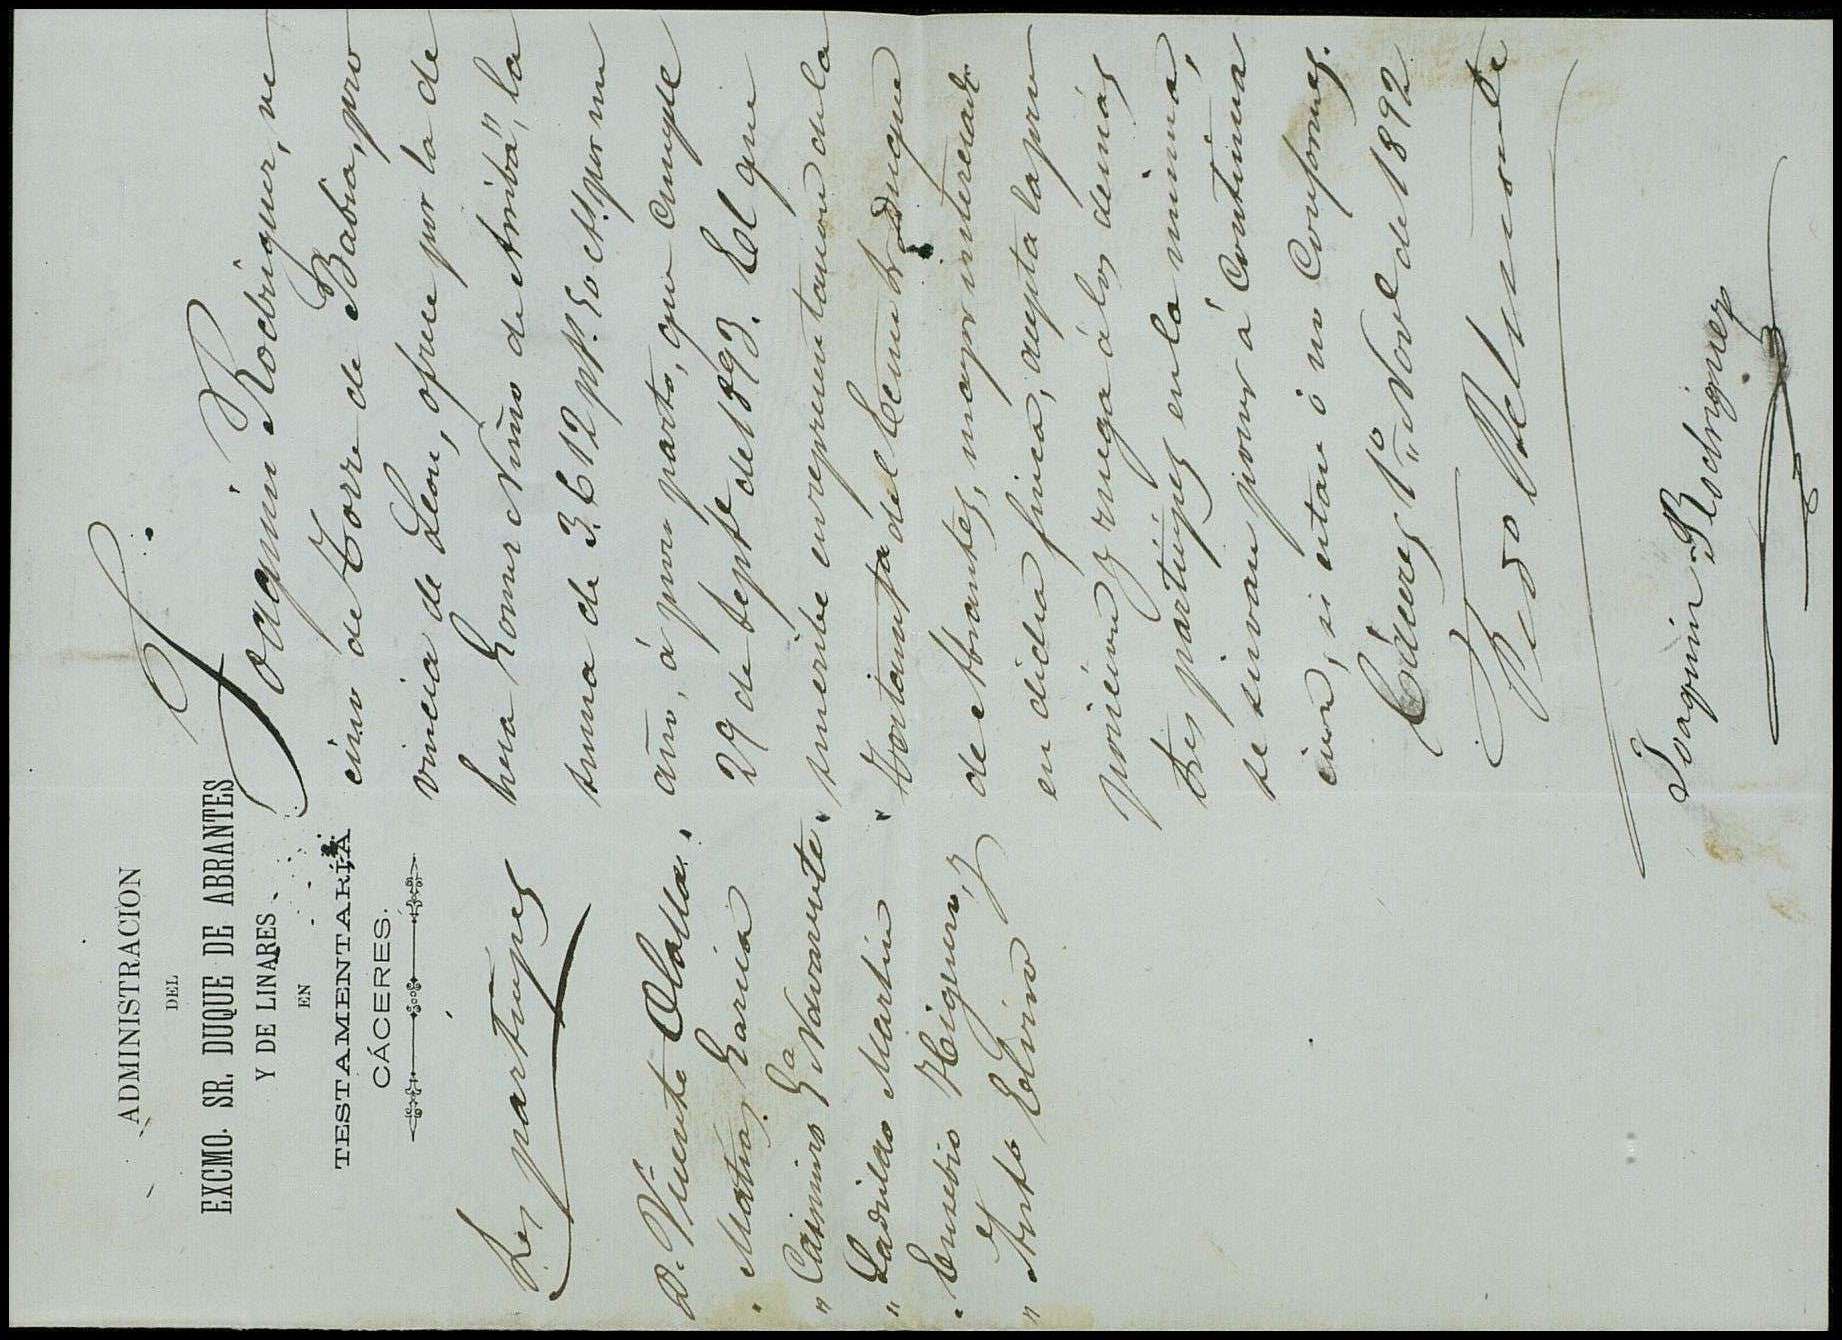 ADMINISTRACION
DEL
EXCMO. SR. DUQUE DE ABRANTES
Y DE LINARES
EN
TESTAMENTARÍA
CÁCERES.
Joaquin Rodriguez, ve
cino de Torre de Babia, pro
vincia de Leon, ofrece por la de
hesa Gomez Nuño de Arriba", la
suma de 3.612 pts. 50 cts. por un
año, á puro pasto, que cumple
29 de Septe de 1893. El que
suscribe en representacion de la
Testamta del Excmo Sr Duque
de Abrantes, mayor interesado
en dicha finca, acepta la pro
posicion y ruega á los demás
Sres participes en la misma,
se sirvan poner á continua
cion, si estan ó no conformes.
Cáceres 1º Nove de 1892
Joaquin Rodriguez
Sres participes
D. Vicente Olalla
" Matias Garcia
" Casimiro Ga Navarrete
" Ladislao Martin
" Eusebio Higuero, y
" Anto Elviro